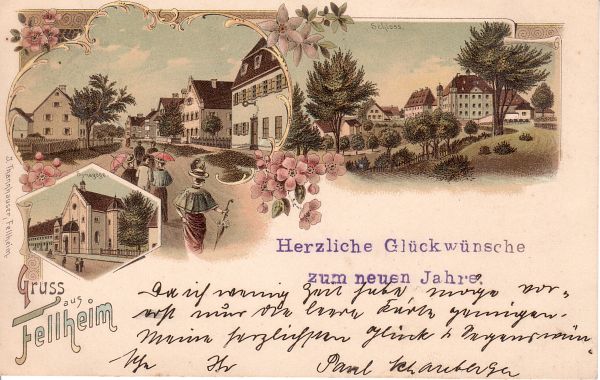 Schloss.
Synagoge
J. Thannhauser, Fellheim.
Gruss
aus
Fellheim
Herzliche Glückwünsche
zum neuen Jahre.
Da ich wenig Zeit habe möge vor-
erst nur die leere Karte genügen.
Meine herzlichsten Glück & Segenswün-
sche Ihr Paul